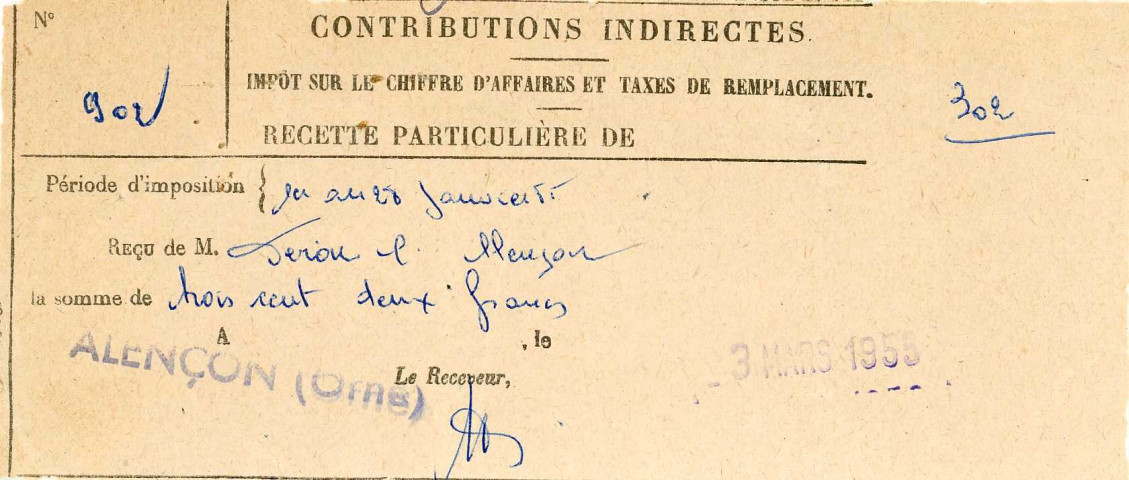 N°
CONTRIBUTIONS INDIRECTES.
IMPÔT SUR LE CHIFFRE D'AFFAIRES ET TAXES DE REMPLACEMENT.
902
302
RECETTE PARTICULIÈRE DE
Période d'imposition {
REÇU de M. Alençon
la somme de trois cent deux francs
A , le
ALENÇON (Orne)
3 MARS 1955
Le Receveur,